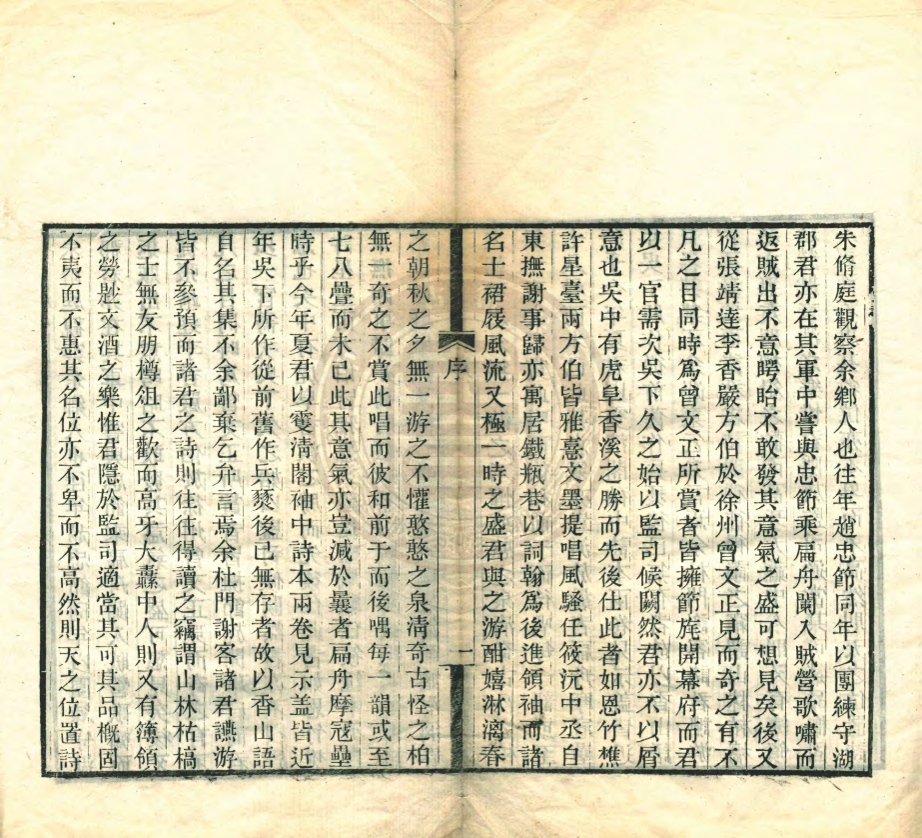 朱脩庭觀察余鄉人也往年趙忠節同年以團練守湖
郡君亦在其軍中嘗與忠節乘扁舟闌入賊營歌嘯而
返賊出不意睅眙不敢發其意氣之盛可想見矣後又
從張靖達李香嚴方伯於徐州曾文正見而奇之有不
凡之目同時為曾文正所賞者皆擁節旄開幕府而君
以一官需次吳下久之始以監司候闕然君亦不以屑
意也吳中有虎阜香溪之勝而先後仕此者如恩竹樵
許星臺兩方伯皆雅憙文墨提唱風騷任筱沅中丞自
東撫謝事歸亦寓居鐵瓶巷以詞翰為後進領袖而諸
名士裙屐風流又極一時之盛君與之游酣嬉淋漓春
序
一
之朝秋之夕無一游之不懽憨憨之泉清奇古怪之柏
無一奇之不賞此唱而彼和前于而後喁每一韻或至
七八疊而未已此其意氣亦豈減於曩者扁舟摩寇壘
時乎今年夏君以雙清閣袖中詩本兩卷見示葢皆近
年吳下所作從前舊作兵燹後已無存者故以香山語
自名其集不余鄙棄乞弁言焉余杜門謝客諸君讌游
皆不參預而諸君之詩則往往得讀之竊謂山林枯槁
之士無友朋樽俎之歡而高牙大纛中人則又有簿領
之勞尟文酒之樂惟君隱於監司適當其可其品概固
不夷而不惠其名位亦不卑而不高然則天之位置詩